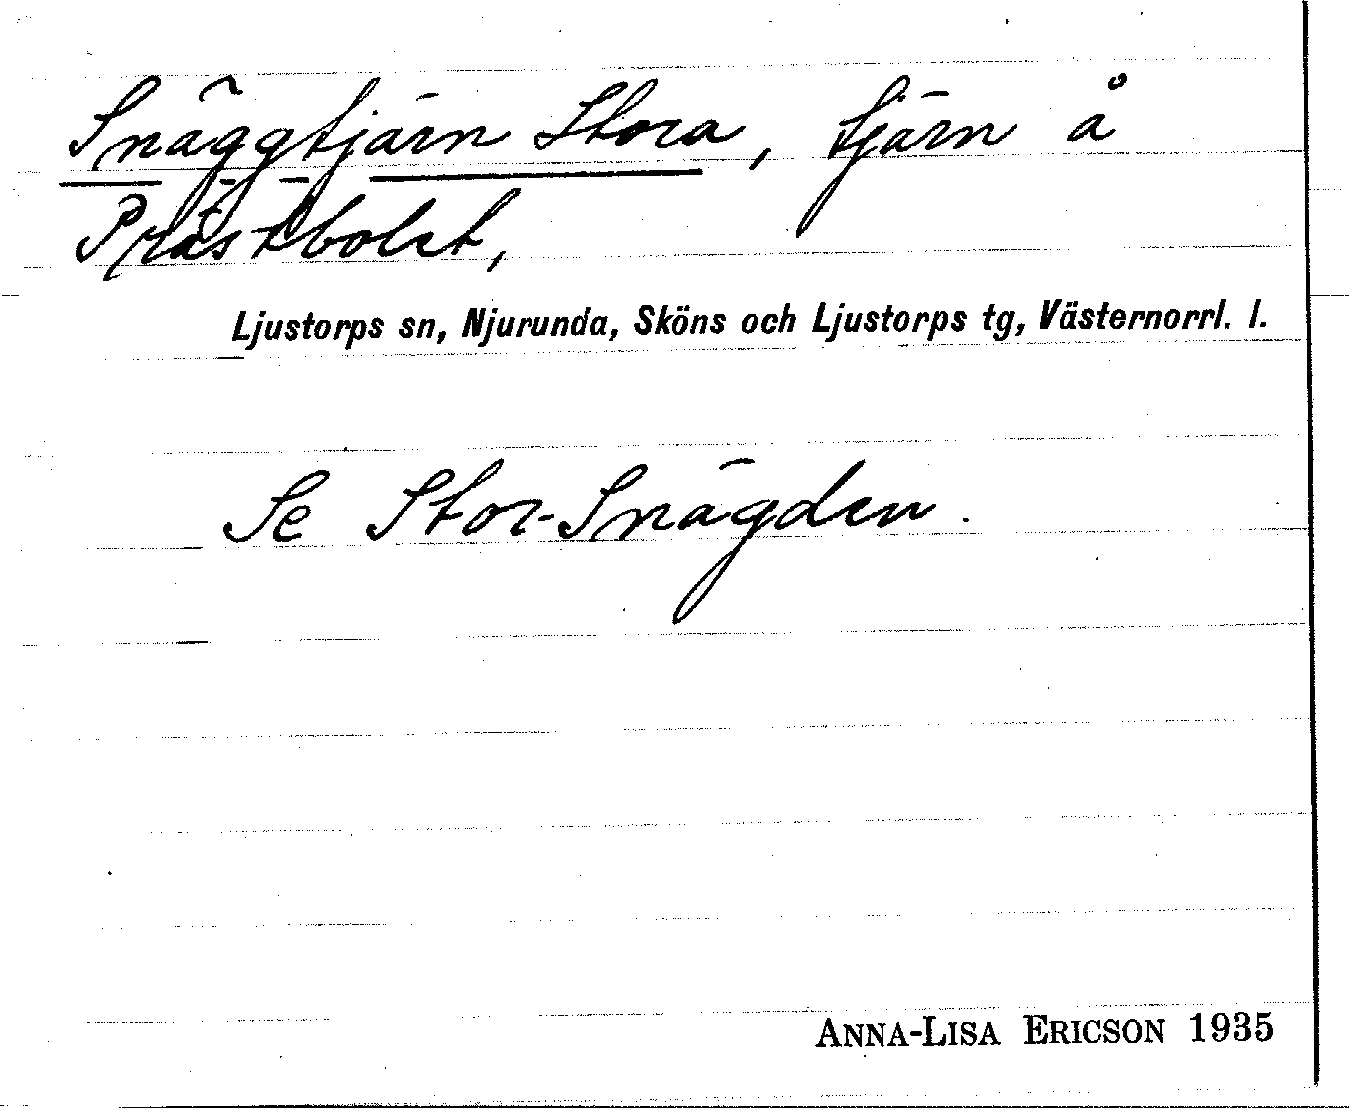 Snäggtjärn Stora, tjärn å
Prästbolet,
Ljustorps sn, Njurunda, Sköns och Ljustorps tg, Västernorrl. l.
Se Stor-Snägden.
ANNA-LISA ERICSON 1935